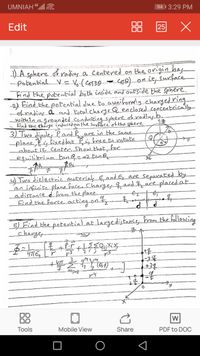 UMNIAH 3:29 PM
Edit
25
1) A sphere of radius a centered on the origin has
potential V = V₀ (cos3θ - cosθ) on its surface
Find the potential both inside and outside the sphere.
2) Find the potential due to a uniformly charged ring
of radius a and total charge Q enclosed concentrically
within a grounded conducting sphere of radius b.
Find the charge induced on the surface of the sphere
3) Two dipoles P₁ and P₂ are in the same
plane, P₁ is fixed but P₂ is free to rotate
about its center. Show that, for
equilibrium tan θ₁ = -2 tan θ₂
4) Two dielectric materials ε₁ and ε₂ are separated by
an infinite plane face. Charges q₁ and q₂ are placed at
a distance d from the plane
Find the force acting on q₂
5) Find the potential at large distance from the following
charge
Tools
Mobile View
Share
PDF to DOC